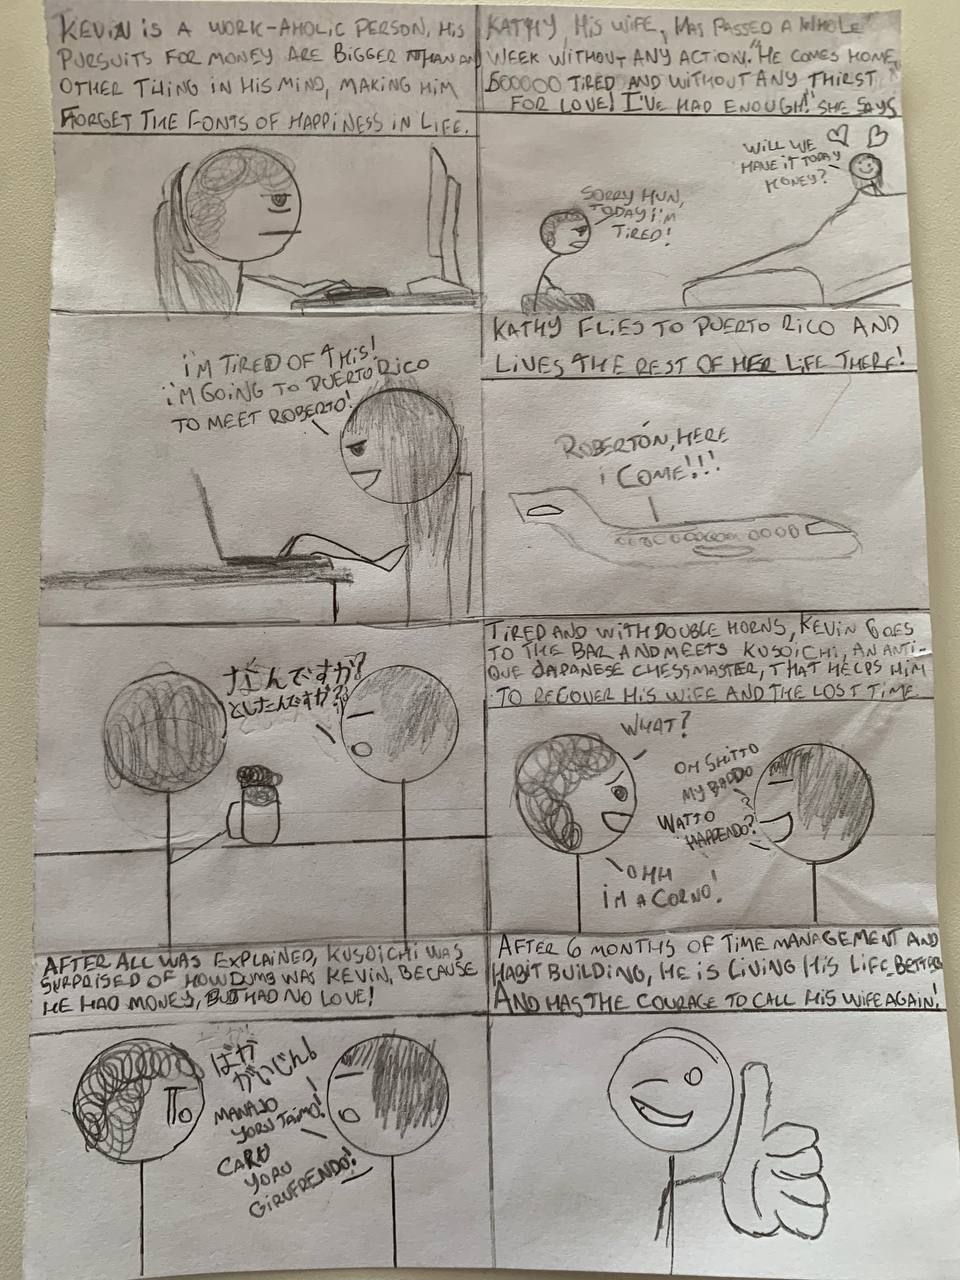 KEVIN IS A WORK-AHOLIC PERSON, HIS
PURSUITS FOR MONEY ARE BIGGER THAN ANY
OTHER THING IN HIS MIND, MAKING HIM
FORGET THE FONTS OF HAPPINESS IN LIFE.
KATHY, HIS WIFE, HAS PASSED A WHOLE
WEEK WITHOUT ANY ACTION. "HE COMES HOME
SOOOOO TIRED AND WITHOUT ANY THIRST
FOR LOVE! I'VE HAD ENOUGH!" SHE SAYS
SORRY HUN,
TODAY I'M
TIRED!
WILL WE
HAVE IT TODAY
HONEY?
I'M TIRED OF THIS!
I'M GOING TO PUERTO RICO
TO MEET ROBERTO!
KATHY FLIES TO PUERTO RICO AND
LIVES THE REST OF HER LIFE THERE!
ROBERTÓN, HERE
I COME!!!
なんですか?
としたんですか?
TIRED AND WITH DOUBLE HORNS, KEVIN GOES
TO THE BAR AND MEETS KUSOICHI, AN ANTI-
QUE JAPANESE CHESSMASTER, THAT HELPS HIM
TO RECOVER HIS WIFE AND THE LOST TIME
WHAT?
OH SHITTO
MY BADDO
WATTO
HAPPENDO?
OHH
I'M A CORNO!
AFTER ALL WAS EXPLAINED, KUSOICHI WAS
SURPRISED OF HOW DUMB WAS KEVIN, BECAUSE
HE HAD MONEY, BUT HAD NO LOVE!
ばか
がいじん!
MANAJO
YORU TAIMO!
CARU
YORU
GIRUFRENDO!
AFTER 6 MONTHS OF TIME MANAGEMENT AND
HABIT BUILDING, HE IS LIVING HIS LIFE BETTER
AND HAS THE COURAGE TO CALL HIS WIFE AGAIN!